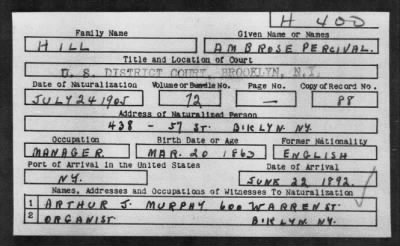 H 400
Family Name Given Name or Names
HILL AMBROSE PERCIVAL.
Title and Location of Court
U. S. DISTRICT COURT, BROOKLYN, N.Y.
Date of Naturalization Volume or Bundle No. Page No. Copy of Record No.
JULY 24 1905 72 — 88
Address of Naturalized Person
438 - 57 ST. B'KLYN NY.
Occupation Birth Date or Age Former Nationality
MANAGER MAR. 20 1863 ENGLISH
Port of Arrival in the United States Date of Arrival
N.Y. JUNE 22 1892
Names, Addresses and Occupations of Witnesses To Naturalization
1 ARTHUR J. MURPHY 600 WARREN ST.
2 ORGANIST B'KLYN. NY.